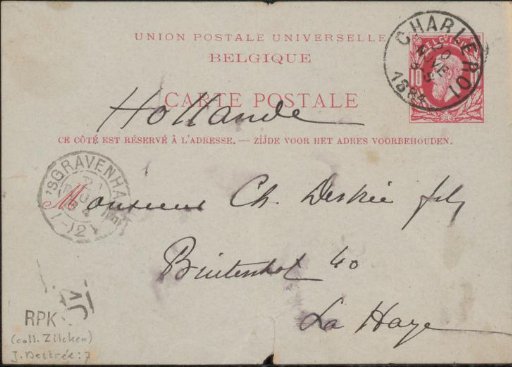 UNION POSTALE UNIVERSELLE
BELGIQUE
CHARLEROI
CARTE POSTALE
Hollande
CE CÔTÉ EST RÉSERVÉ À L'ADRESSE. — ZIJDE VOOR HET ADRES VOORBEHOUDEN.
'SGRAVENHA
Monsieur Ch. Destrée fils
Buitenhof 40
La Haye
RPK
(coll. Zilcken)
J. Destrée: 7